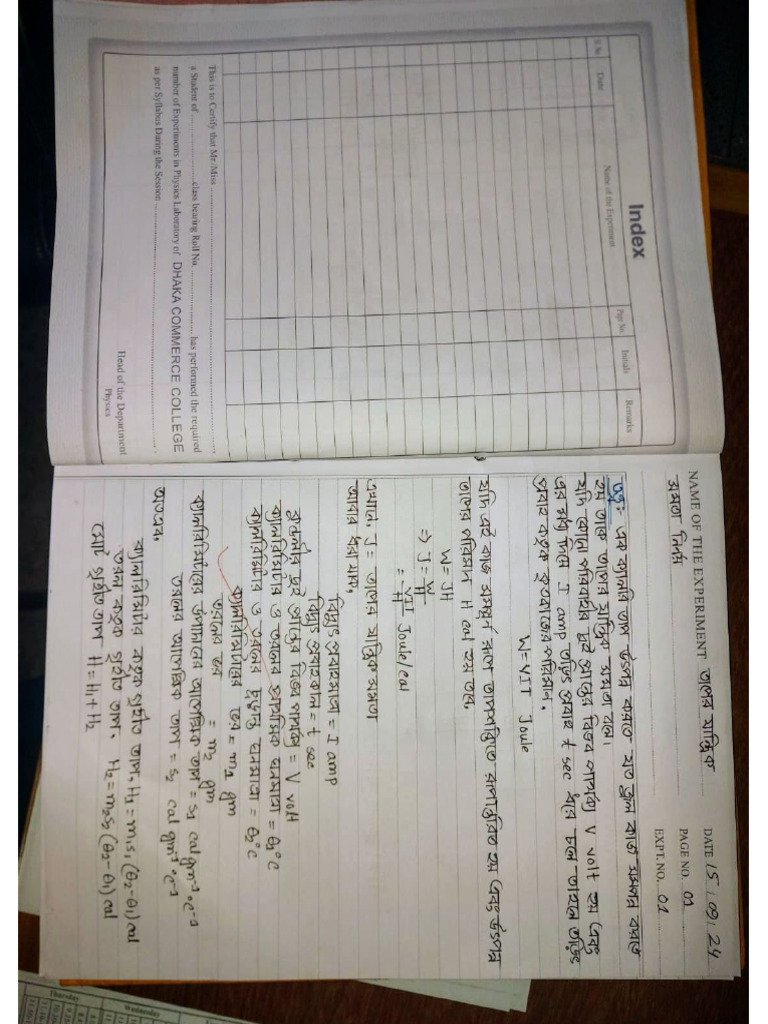 Index
Sl. No.	Date	Name of the Experiment	Page No.	Initials	Remarks
This is to Certify that Mr./Miss
a Student of class bearing Roll No. has performed the required
number of Experiments in Physics Laboratory of DHAKA COMMERCE COLLEGE
as per Syllabus During the Session
Head of the Department
Physics
NAME OF THE EXPERIMENT তাপের যান্ত্রিক
সমতা নির্ণয়
DATE 15.09.24
PAGE NO. 01
EXPT. NO. 01
তত্ত্ব: এক ক্যালরি তাপ উৎপন্ন করতে যত জুল কাজ সম্পন্ন করতে
হয় তাকে তাপের যান্ত্রিক সমতা বলে।
যদি কোনো পরিবাহীর দুই প্রান্তের বিভব পার্থক্য V volt হয় এবং
এর মধ্য দিয়ে I amp তড়িৎ প্রবাহ t sec ধরে চলে তাহলে তড়িৎ
প্রবাহ কর্তৃক কৃতকাজের পরিমান,
W = VIT Joule
যদি এই কাজ সম্পূর্ণ রূপে তাপশক্তিতে রূপান্তরিত হয় এবং উৎপন্ন
তাপের পরিমান H cal হয় তবে,
W = JH
⇒ J = W/H
= VIT/H Joule/cal
এখানে, J = তাপের যান্ত্রিক সমতা
আবার ধরা যাক,
বিদ্যুৎ প্রবাহমাত্রা = I amp
বিদ্যুৎ প্রবাহকাল = t sec
কুন্ডলীর দুই প্রান্তের বিভব পার্থক্য = V volt
ক্যালরিমিটার ও তরলের প্রাথমিক তাপমাত্রা = θ₁°C
ক্যালরিমিটার ও তরলের চূড়ান্ত তাপমাত্রা = θ₂°C
ক্যালরিমিটারের ভর = m₁ gm
তরলের ভর = m₂ gm
ক্যালরিমিটারের উপাদানের আপেক্ষিক তাপ = s₁ cal gm⁻¹ °c⁻¹
তরলের আপেক্ষিক তাপ = s₂ cal gm⁻¹ °c⁻¹
অতএব,
ক্যালরিমিটার কর্তৃক গৃহীত তাপ, H₁ = m₁s₁ (θ₂-θ₁) cal
তরল কর্তৃক গৃহীত তাপ, H₂ = m₂s₂ (θ₂-θ₁) cal
মোট গৃহীত তাপ H = H₁ + H₂
Thursday
Wednesday